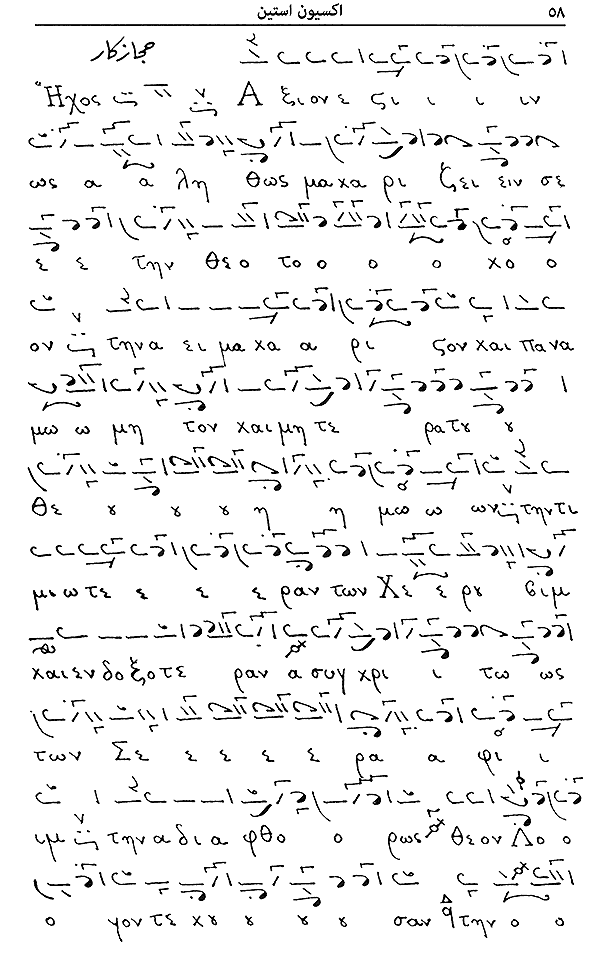 ٥٨ اكسيون استين
حجازكار
Ἦχος Α ξιον ε ϛι ι ι ιν
ως α α λη θως μα κα ρι ζει ειν σε
ε ε την Θεο το ο ο ο κο ο
ον την α ει μα κα α ρι ϛον και πανα
μω ω μη τον και μη τε ρα τȣ ȣ
Θε ȣ ȣ η η μω ω ων την τι
μι ω τε ε ε ε ραν των Χε ε ρȣ βιμ
και εν δο ξο τε ραν α συγ κρι ι τω ως
των Σε ε ε ε ε ρα α φι ι
ιμ την α δι α φθο ο ρως θεον Λο ο
ο γον τε κȣ ȣ ȣ ȣ σαν την ο ο